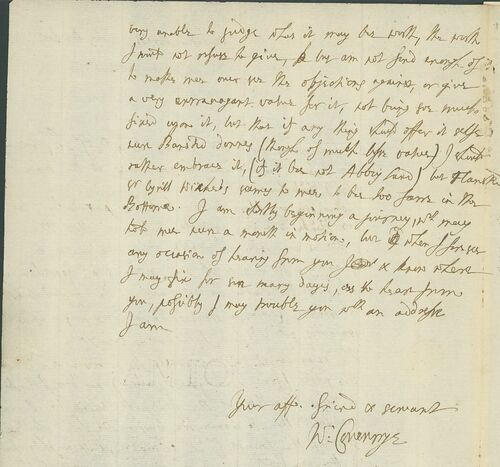 very unable to judge what it may bee worth, the worth
I must not refuse to give, but am not fond enough of it
to make mee over see the objections against, or give
a very extravagant value for it, not being soe much
fixed upon it, but that if any thing should offer it self
neere Blandford downes (though of much lesse value) I should
rather embrace it, (if it bee not Abby land) but
Sr Cyrill seemes to mee to bee too farre in the
Bottome. I am shortly beginning a journey, wch may
keep mee neere a month in motion, but when I foresee
any occasion of hearing from you & know where
I may fix for soe many dayes, as to heare from
you, possibly I may trouble you with an addresse
I am
Your affte. friend & servant
W: Coventrye